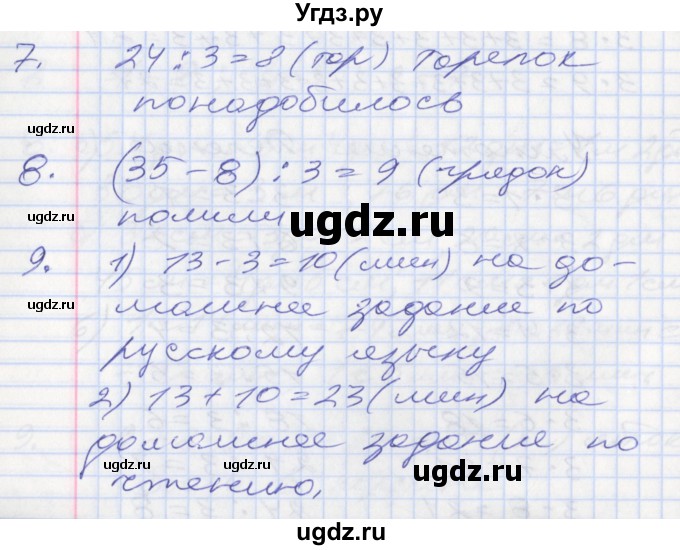 Угдз.ру
7. 24 : 3 = 8 (тар) тарелок
понадобилось
ugdz.ru
8. (35 - 8) : 3 = 9 (грядок)
ugdz.ru
полили
ugdz.ru
9. 1) 13 - 3 = 10 (мин) на до-
ugdz.ru
машнее задание по
русскому языку
2) 13 + 10 = 23 (мин) на
домашнее задание по
ugdz.ru ugdz.ru ugdz.ru
чтению.
ugdz.ru